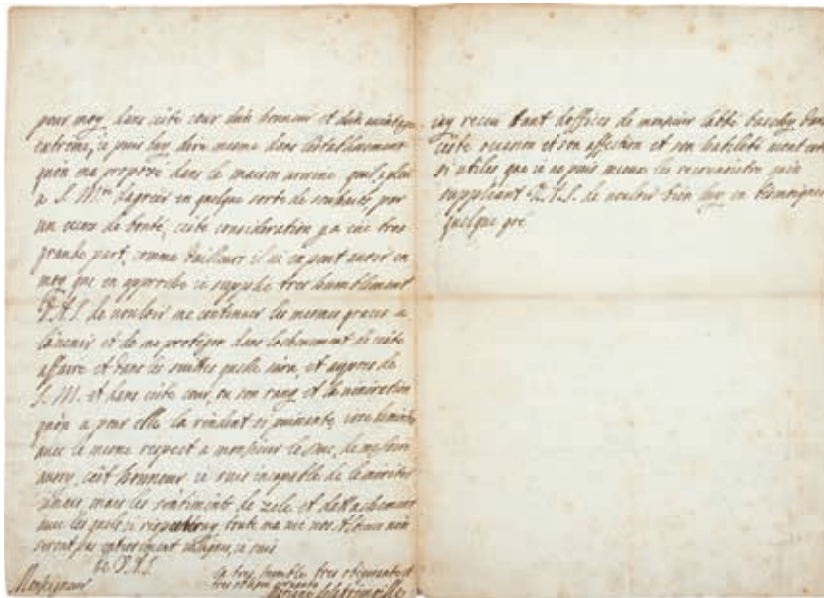 pour moy, dans cette cour doit honneur et doit
extreme, ie puis luy dire mesme dans l'establissement
quon ma proposé dans la maison quil plut
a S. M. d'agréer en quelque sorte de souhaiter par
un exces de bonté, cette consideration y a eüe tres
grande part, comme d'ailleurs il ni en peut auoir en
moy que en approche ie supplie tres humblement
V.A.S. de vouloir me continuer les mesmes graces a
l'auenir et de me proteger dans l'acheuement de cette
affaire et dans les suittes quelle aura, et aupres de
S. M. et dans cette cour, ou son rang et la veneration
quon a pour elle la rendent si puissante,
auec le mesme respect a monsieur le duc, de me faire
aussy cest honneur ie suis incapable de le meriter
iamais mais les sentiments de zele et d'attachement
auec les quels ie respecteray toute ma vie vos Altesses
seront pas entierement ie suis
de V.A.S.
Monseigneur
La tres humble tres obeissante et
tres
ay receu tant d'offices de monsieur l'abbé dans
cette occasion et son affection et son habileté mont esté
si utiles que ie ne puis mieux les reconnoistre quen
suppliant V.A.S. de vouloir bien luy en temoigner
quelque gré